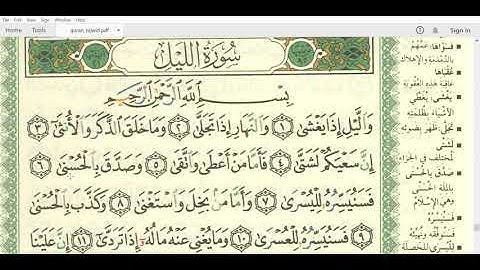 Home Tools quran_tajwid.pdf × Sign In
سُورَةُ اللَّيْلِ
بِسْمِ ٱللَّهِ ٱلرَّحْمَٰنِ ٱلرَّحِيمِ
وَٱلَّيْلِ إِذَا يَغْشَىٰ ١ وَٱلنَّهَارِ إِذَا تَجَلَّىٰ ٢ وَمَا خَلَقَ ٱلذَّكَرَ وَٱلْأُنثَىٰ ٣
إِنَّ سَعْيَكُمْ لَشَتَّىٰ ٤ فَأَمَّا مَنْ أَعْطَىٰ وَٱتَّقَىٰ ٥ وَصَدَّقَ بِٱلْحُسْنَىٰ ٦
فَسَنُيَسِّرُهُۥ لِلْيُسْرَىٰ ٧ وَأَمَّا مَنۢ بَخِلَ وَٱسْتَغْنَىٰ ٨ وَكَذَّبَ بِٱلْحُسْنَىٰ
٩ فَسَنُيَسِّرُهُۥ لِلْعُسْرَىٰ ١٠ وَمَا يُغْنِى عَنْهُ مَالُهُۥٓ إِذَا تَرَدَّىٰٓ ١١ إِنَّ عَلَيْنَا
فَسَوَّاهَا: عَمَّهُمْ
بالدَّمْدَمَةِ والإهلاك
عُقْبَاهَا
عاقبة هذه العقوبة
يَغْشَى: يُغَطِّي
الأشياء بِظُلْمَتِهِ
تَجَلَّى: ظهر بضوئه
لَشَتَّى
لمختلف في الجزاء
صَدَّقَ بالحُسْنَى
بالملة الحسنى
وهي الإسلام
فَسَنُيَسِّرُهُ
فَسَنُوَفِّقُه ونُهَيِّئُه
لِلْيُسْرَى: للخصلة